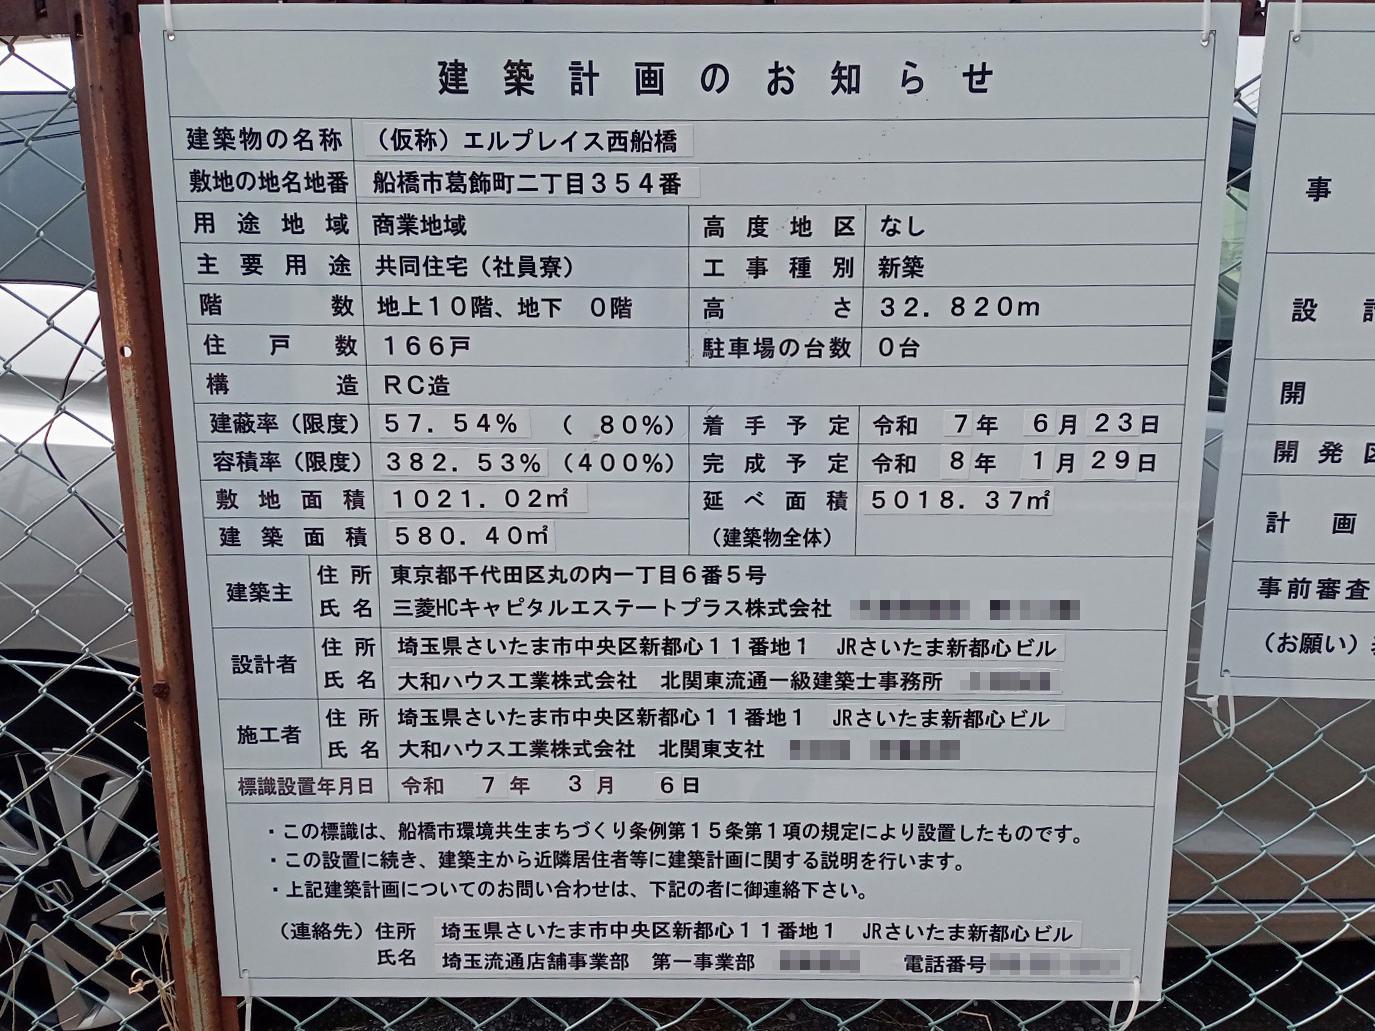 建築計画のお知らせ
建築物の名称 （仮称）エルプレイス西船橋
敷地の地名地番 船橋市葛飾町二丁目３５４番
用途地域 商業地域 高度地区 なし
主要用途 共同住宅（社員寮） 工事種別 新築
階数 地上１０階、地下　０階 高さ ３２．８２０ｍ
住戸数 １６６戸 駐車場の台数 ０台
構造 ＲＣ造
建蔽率（限度） ５７．５４％ （　８０％） 着手予定 令和　７年　６月２３日
容積率（限度） ３８２．５３％ （４００％） 完成予定 令和　８年　１月２９日
敷地面積 １０２１．０２㎡ 延べ面積 ５０１８．３７㎡
建築面積 ５８０．４０㎡ （建築物全体）
建築主 住所 東京都千代田区丸の内一丁目６番５号
氏名 三菱HCキャピタルエステートプラス株式会社
設計者 住所 埼玉県さいたま市中央区新都心１１番地１　JRさいたま新都心ビル
氏名 大和ハウス工業株式会社　北関東流通一級建築士事務所
施工者 住所 埼玉県さいたま市中央区新都心１１番地１　JRさいたま新都心ビル
氏名 大和ハウス工業株式会社　北関東支社
標識設置年月日 令和　７年　３月　６日
・この標識は、船橋市環境共生まちづくり条例第１５条第１項の規定により設置したものです。
・この設置に続き、建築主から近隣居住者等に建築計画に関する説明を行います。
・上記建築計画についてのお問い合わせは、下記の者に御連絡下さい。
（連絡先）住所 埼玉県さいたま市中央区新都心１１番地１　JRさいたま新都心ビル
氏名 埼玉流通店舗事業部　第一事業部 電話番号
事
設計
開
開発区
計画
事前審査
（お願い）